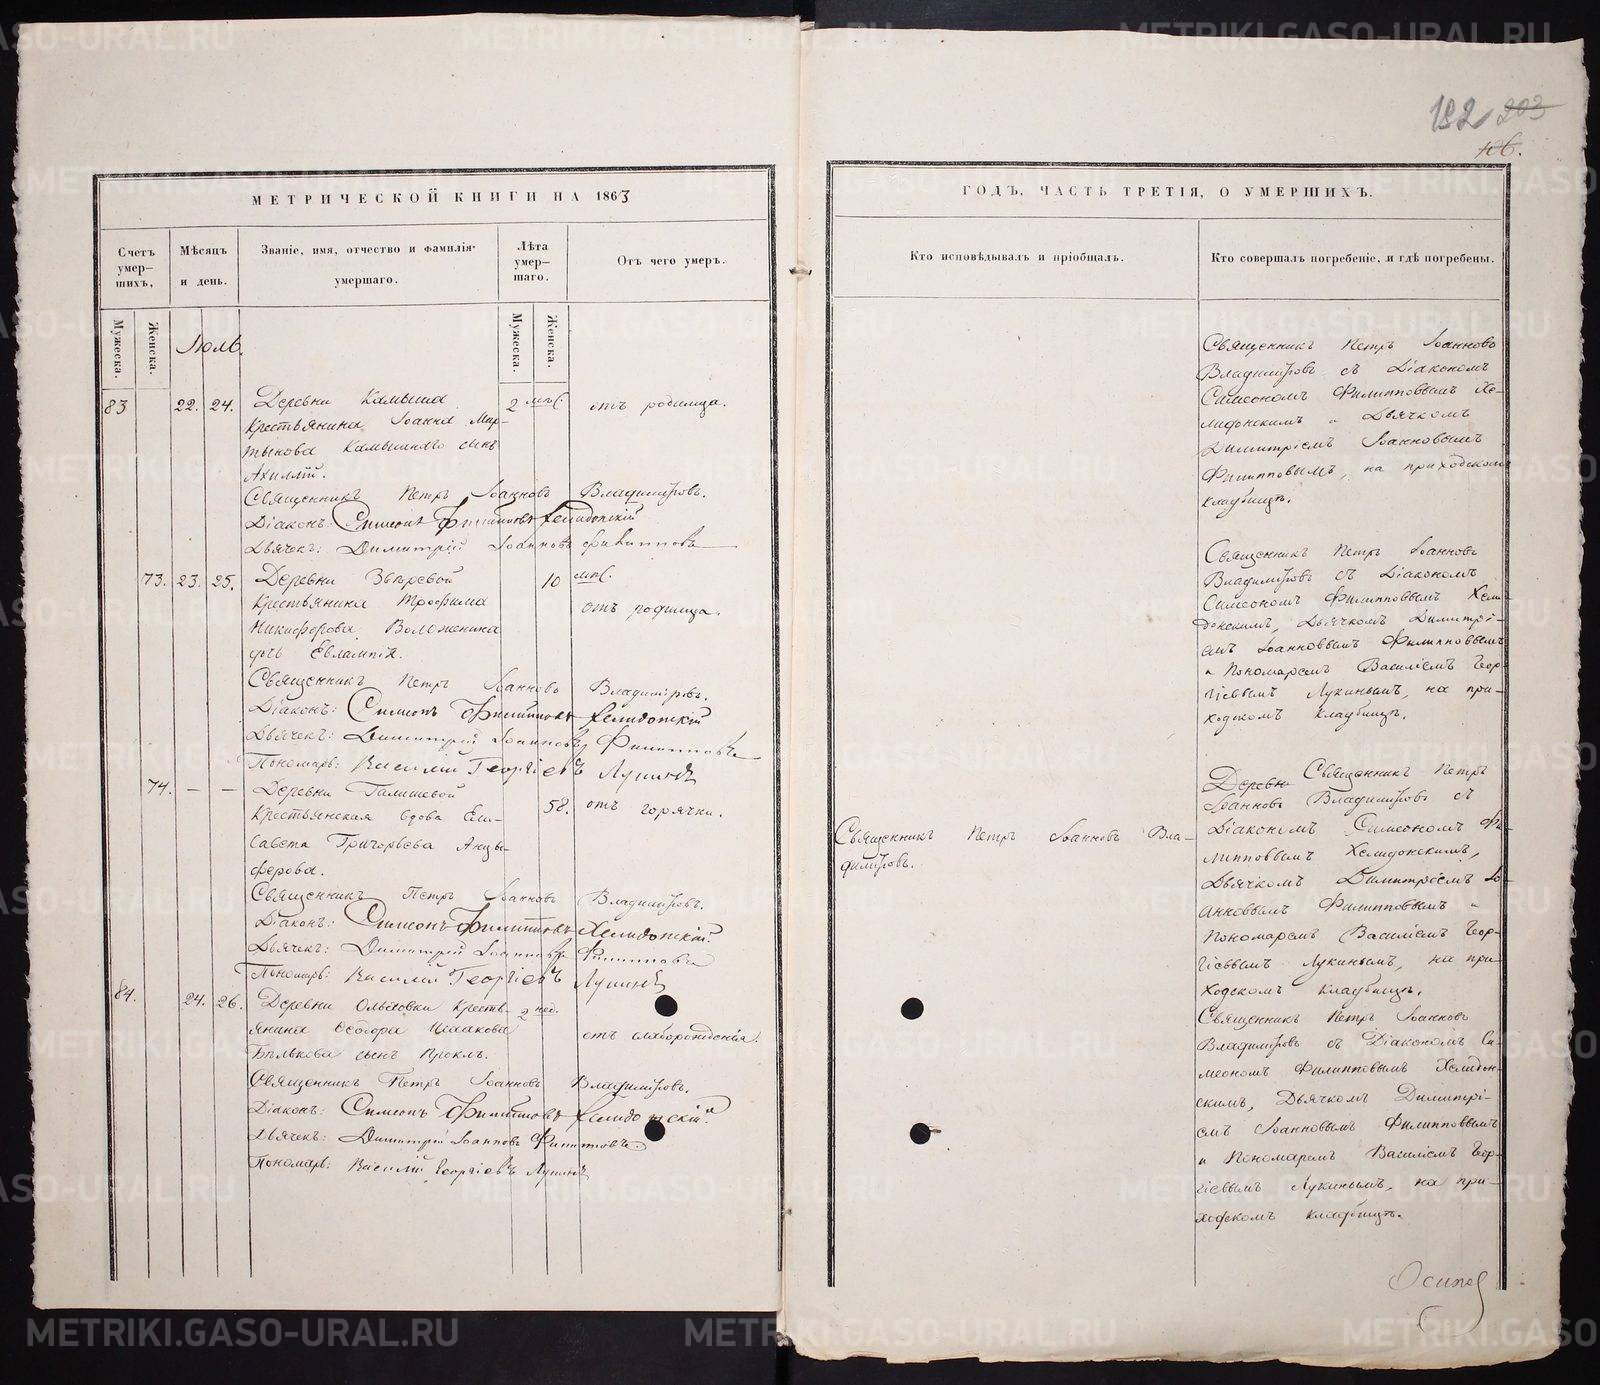 182 203
106.
МЕТРИЧЕСКОЙ КНИГИ НА 1863
Счетъ умер-шихъ,
Мужеска.
Женска.
Мѣсяцъ и день.
Званіе, имя, отчество и фамилія умершаго.
Лѣта умер-шаго.
Мужеска.
Женска.
Отъ чего умеръ.
Іюль.
83 22. 24. Деревни Камыша 2 мѣс. отъ родимца.
Крестьянина Іоанна Мар-
тынова Камышнаго сынъ
Ахиллій.
Священникъ Петръ Іоанновъ Владиміровъ.
Діаконъ: Симеонъ Филипповъ Хелидонскій
Дьячекъ: Димитрій Іоанновъ Филипповъ
73. 23. 25. Деревни Звѣревой 10 мѣс.
Крестьянина Трофима отъ родимца.
Никифорова Воложенина
дочь Евлампія.
Священникъ Петръ Іоанновъ Владиміровъ.
Діаконъ: Симеонъ Филипповъ Хелидонскій
Дьячекъ: Димитрій Іоанновъ Филипповъ
Пономарь: Василій Георгіевъ Лукинъ
74. – – Деревни Галишевой 58. отъ горячки.
Крестьянская вдова Ели-
савета Григорьева Анцы-
ферова.
Священникъ Петръ Іоанновъ Владиміровъ.
Діаконъ: Симеонъ Филипповъ Хелидонскій.
Дьячекъ: Димитрій Іоанновъ Филипповъ
Пономарь: Василій Георгіевъ Лукинъ
84. 24. 26. Деревни Ольховки Кресть- 2 нед.
янина Ѳедора Исаакова отъ слаборожденія.
Бѣлькова сынъ Проклъ.
Священникъ Петръ Іоанновъ Владиміровъ.
Діаконъ: Симеонъ Филипповъ Хелидонскій.
Дьячекъ: Димитрій Іоанновъ Филипповъ.
Пономарь: Василій Георгіевъ Лукинъ
ГОДЪ, ЧАСТЬ ТРЕТІЯ, О УМЕРШИХЪ.
Кто исповѣдывалъ и пріобщалъ.
Кто совершалъ погребеніе, и гдѣ погребены.
Священникъ Петръ Іоанновъ
Владиміровъ съ Діакономъ
Симеономъ Филипповымъ Хе-
лидонскимъ и Дьячкомъ
Димитріемъ Іоанновымъ
Филипповымъ, на приходскомъ
кладбищѣ.
Священникъ Петръ Іоанновъ
Владиміровъ съ Діакономъ
Симеономъ Филипповымъ Хели-
донскимъ, Дьячкомъ Димитрі-
емъ Іоанновымъ Филипповымъ
и Пономаремъ Василіемъ Геор-
гіевымъ Лукинымъ, на при-
ходскомъ кладбищѣ.
Священникъ Петръ Іоанновъ Вла-
диміровъ.
Деревн Священникъ Петръ
Іоанновъ Владиміровъ съ
Діакономъ Симеономъ Фи-
липповымъ Хелидонскимъ,
Дьячкомъ Димитріемъ Іо-
анновымъ Филипповымъ и
Пономаремъ Василіемъ Геор-
гіевымъ Лукинымъ, на при-
ходскомъ кладбищѣ.
Священникъ Петръ Іоанновъ
Владиміровъ съ Діакономъ Си-
меономъ Филипповымъ Хелидон-
скимъ, Дьячкомъ Димитрі-
емъ Іоанновымъ Филипповымъ
и Пономаремъ Василіемъ Геор-
гіевымъ Лукинымъ, на при-
ходскомъ кладбищѣ.
Осипов
METRIKI.GASO-URAL.RU